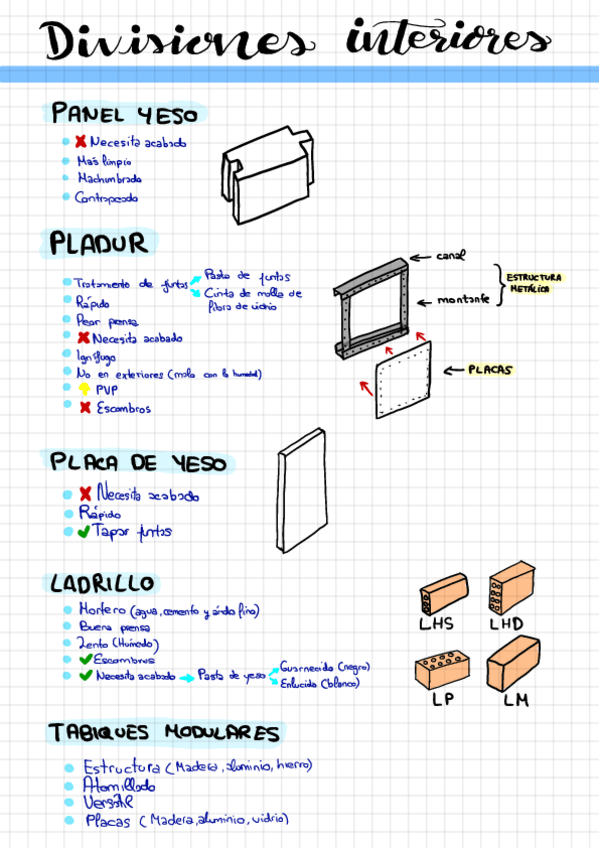 Divisiones interiores
PANEL YESO
Necesita acabado
Más limpio
Machimbrado
Contrapeado
PLADUR
Tratamiento de juntas
Pasta de juntas
Cinta de malla de
fibra de vidrio
Rápido
Peor prensa
Necesita acabado
Ignífugo
No en exteriores (mala con la humedad)
PVP
Escombros
canal
montante
ESTRUCTURA
METÁLICA
PLACAS
PLACA DE YESO
Necesita acabado
Rápido
Tapar juntas
LADRILLO
Mortero (agua, cemento y árido fino)
Buena prensa
Lento (Húmedo)
Escombros
Necesita acabado
Pasta de yeso
Guarnecido (negro)
Enlucido (blanco)
LHS
LHD
LP
LM
TABIQUES MODULARES
Estructura (Madera, aluminio, hierro)
Atornillado
Versátil
Placas (Madera, aluminio, vidrio)